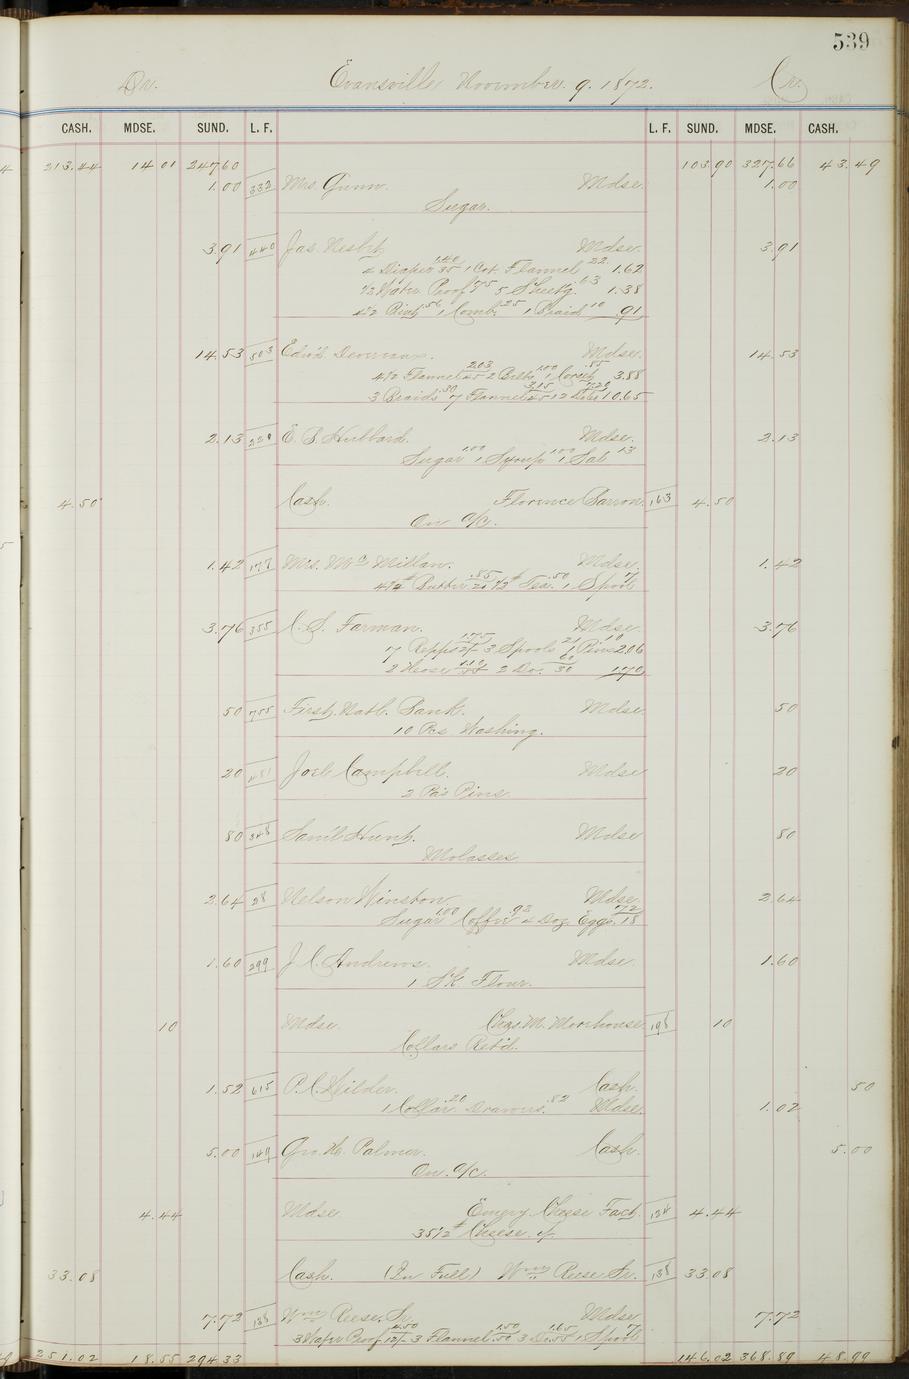 539
Dr. Evansville November 9. 1872. Cr.
CASH. MDSE. SUND. L. F. L. F. SUND. MDSE. CASH.
213.44 14 01 247 60 103.90 327.66 43.49
1.00 332 Mrs. Gunn. Mdse. 1.00
Sugar.
3.91 440 Jas. Nesbit Mdse. 3.91
4 Diaper 35 1.40 1 Cot. Flannel 22 1.62
1/2 Water Proof 75 5 Sheetg. 63 1.38
4 1/2 56 1 Comb 25 1 Braid 10 .91
14.53 503 Mdse. 14.53
4 1/2 Flannel 45 2.03 2 Belts 1.00 1 Corset .85 3.88
3 Braids .30 7 Flannel 45 3.15 12 7.20 10.65
2.13 220 E. B. Hubbard. Mdse. 2.13
Sugar 1.00 1 Syrup 1.00 1 Sal 13
4.50 Cash. Florence 163 4.50
On a/c.
1.42 177 Mrs. McMillan. Mdse. 1.42
4 1/4# Butter 20 .85 1/2# Tea. .50 1 Spool 7
3.76 355 C. S. Farman. Mdse. 3.76
7 Repps 2/ 1.75 3 Spools 21 1 Pins 10 2.06
2 Hose 55 1.10 2 Do. 30 60 1.70
50 755 First. Natl. Bank. Mdse. 50
10 Pcs Washing.
20 451 Joel Campbell. Mdse 20
2 Pa's Pins
80 348 Saml Hunt. Mdse 80
Molasses
2.64 28 Nelson Winston Mdse. 2.64
Sugar 1.00 Coffee 92 4 Doz. Eggs. 18 72
1.60 299 J. C. Andrews. Mdse. 1.60
1 Sk. Flour.
10 Mdse. Chas. M. Morehouse 198 10
Collars Ret'd.
1.52 615 P. C. Wilder. Cash. 50
1 Collar .20 Drawers. .82 Mdse. 1.02
5.00 149 Geo. H. Palmer. Cash. 5.00
On. a/c.
4.44 Mdse. Emery Cheese Fact. 124 4.44
35 1/2# Cheese.
33.08 Cash. (In Full) Wm Reese Sr. 138 33.08
7.72 138 Wm Reese, Sr. Mdse 7.72
3 Water Proof 12/ 4.50 3 Flannel .50 1.50 3 Do .55 1.65 1 Spool 7
251.02 18.55 294 33 146.02 368.89 48.99